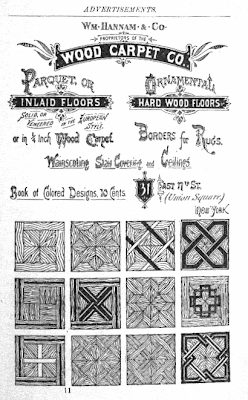 ADVERTISEMENTS.
WM. HANNAM & CO.
PROPRIETORS OF THE
WOOD CARPET CO.
PARQUET, OR
INLAID FLOORS
SOLID, OR VENEERED IN THE EUROPEAN STYLE,
or in ¼ inch Wood Carpet
ORNAMENTAL
HARD WOOD FLOORS
Borders for Rugs.
Wainscoting Stair Covering and Ceilings.
Book of Colored Designs, 20 Cents.
31
EAST 17TH ST.
(Union Square)
New York
11